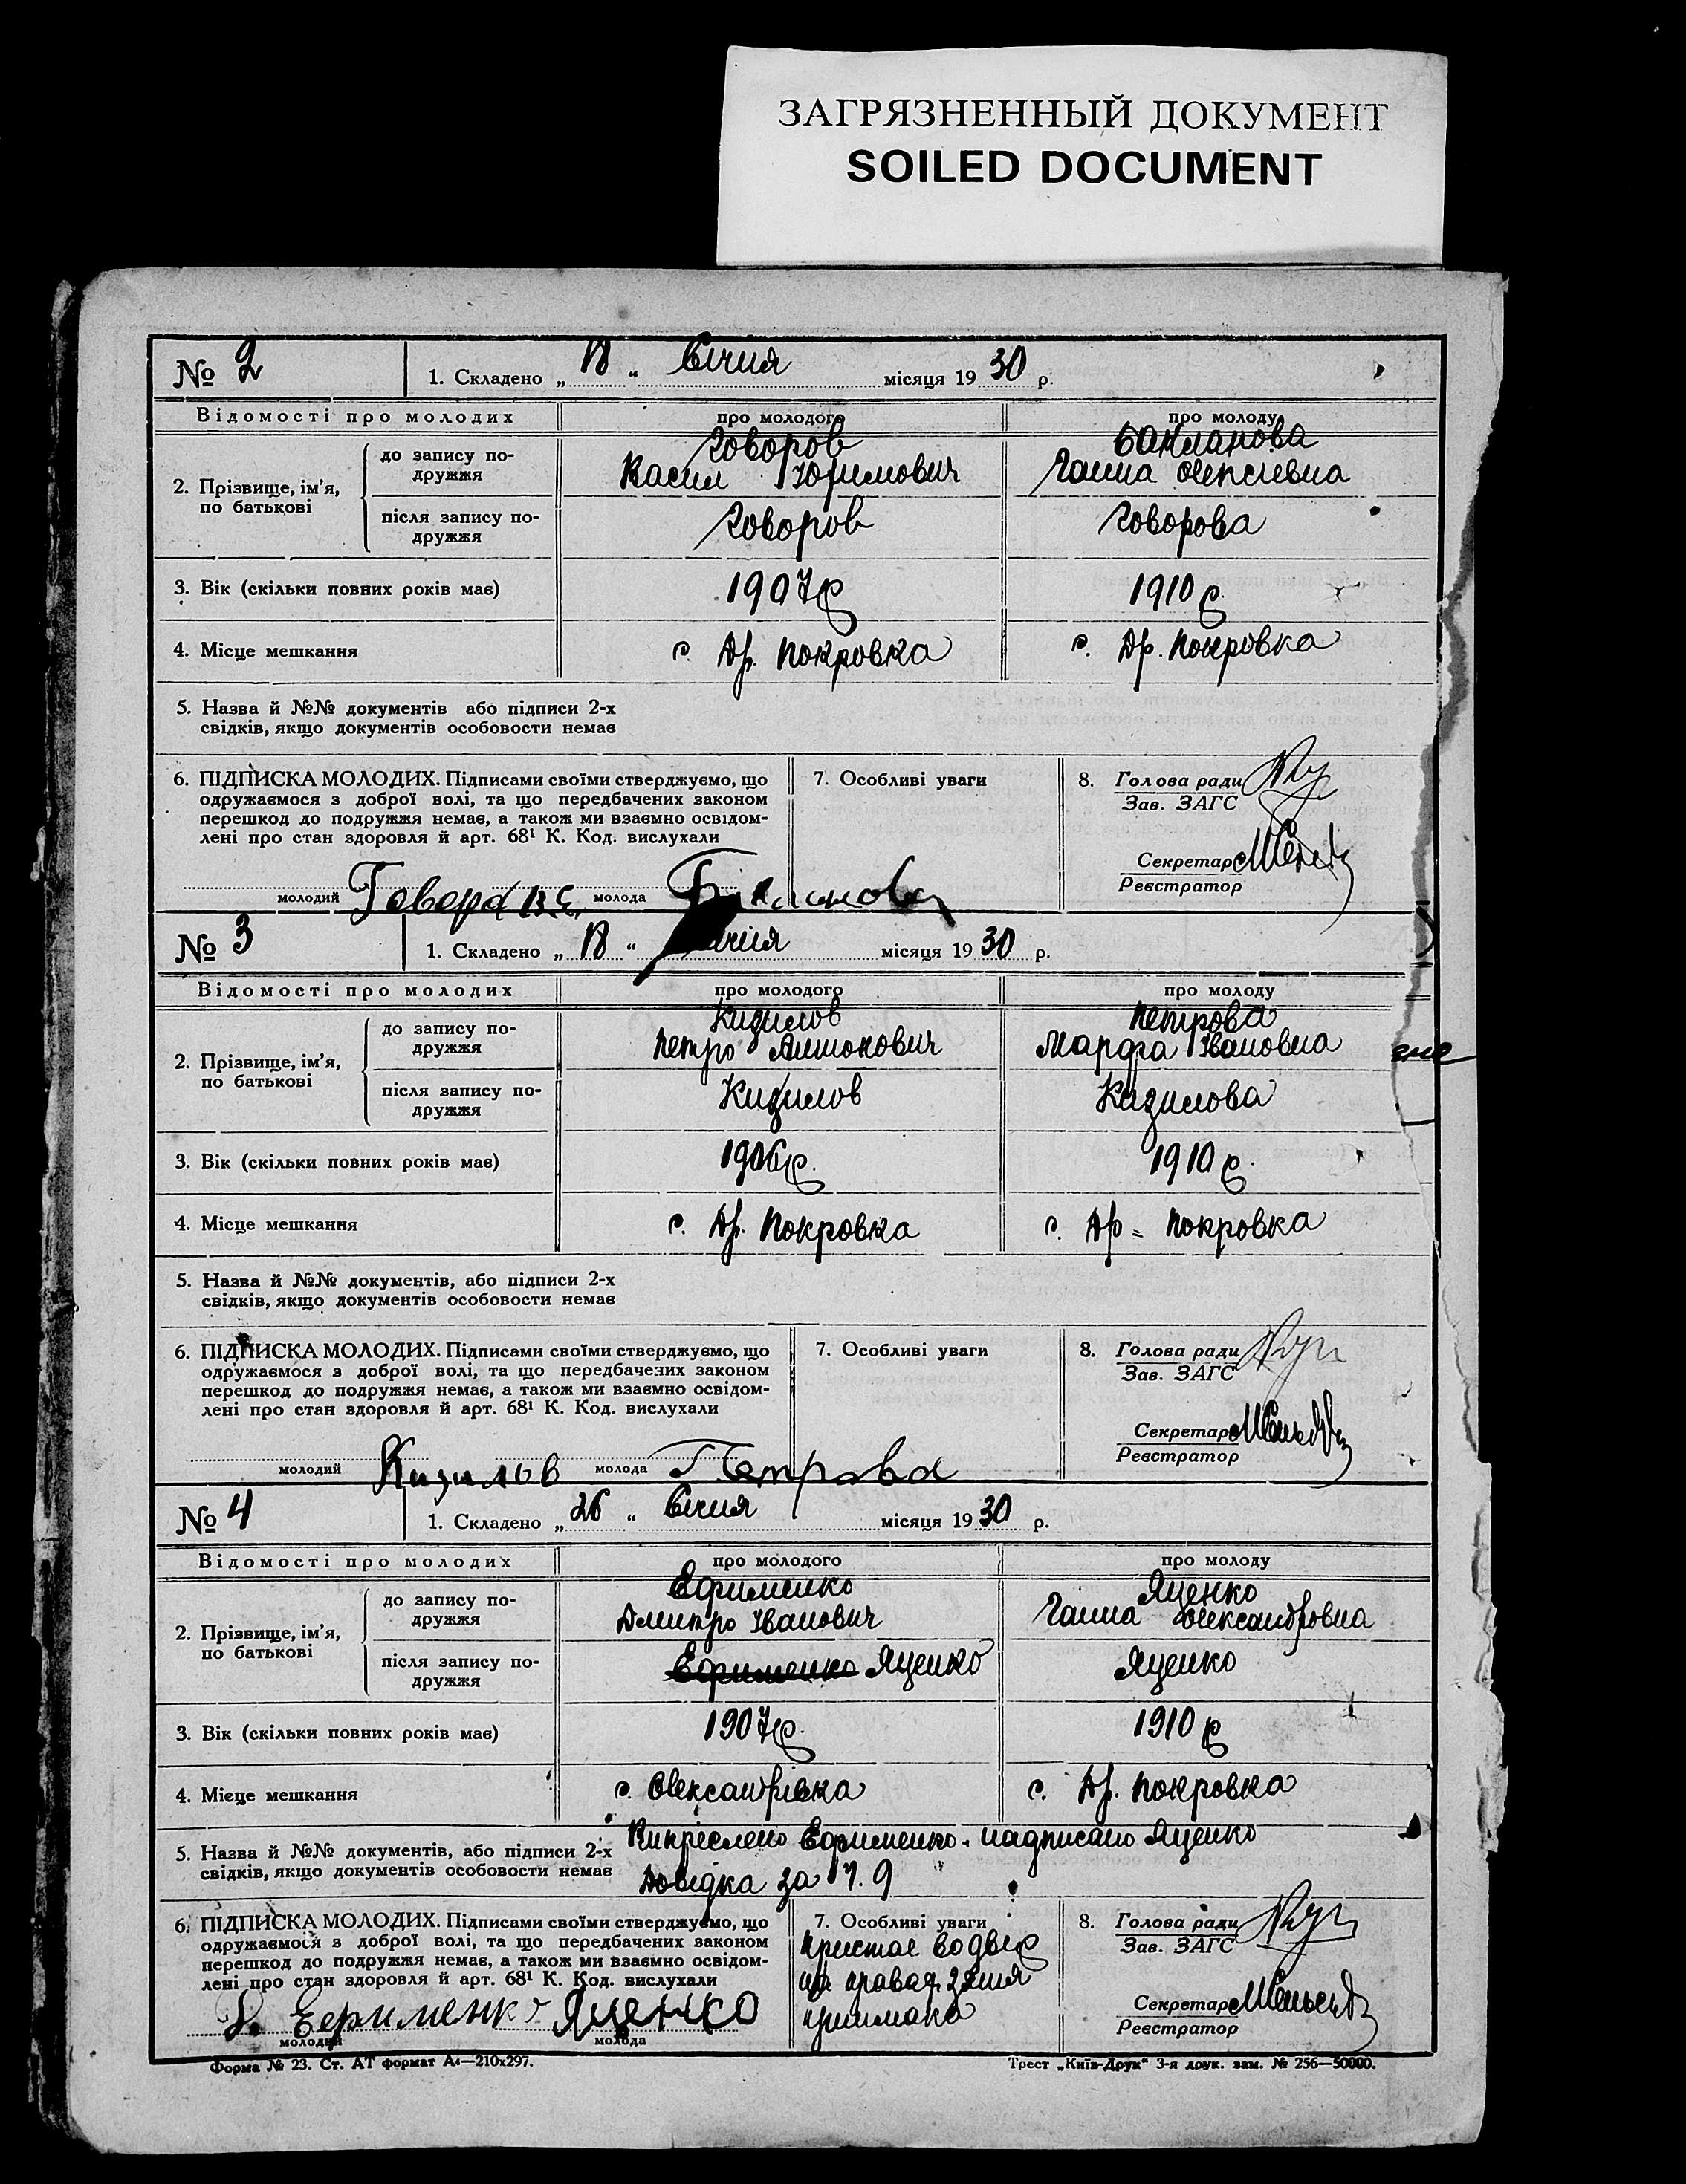 ЗАГРЯЗНЕННЫЙ ДОКУМЕНТ
SOILED DOCUMENT
№ 2 1. Складено „ 18 “ Січня місяця 19 30 р.
Відомості про молодих про молодого про молоду
2. Прізвище, ім’я, по батькові
до запису подружжя
Говоров Бакланова
Василь Юхимович Ганна Олексіевна
після запису по-
дружжя
Говоров Говорова
3. Вік (скільки повних років має) 1907 р 1910 р.
4. Місце мешкання с. Др. Покровка с. Др. Покровка
5. Назва й №№ документів або підписи 2-х
свідків, якщо документів особовости немає
6. ПІДПИСКА МОЛОДИХ. Підписами своїми стверджуємо, що
одружаємося з доброї волі, та що передбачених законом
перешкод до подружжя немає, а також ми взаємно освідом-
лені про стан здоровля й арт. 68¹ К. Код. вислухали
молодий Говоров молода Бакланова
7. Особливі уваги
8. Голова ради
Зав. ЗАГС
Секретар
Реєстратор
№ 3 1. Складено „ 18 “ місяця 19 30 р.
Відомості про молодих про молодого про молоду
2. Прізвище, ім’я,
по батькові
до запису по-
дружжя
Кизилов Петрова
Петро Антонович Марфа Івановна
після запису по-
дружжя
Кизилов Кизилова
3. Вік (скільки повних років має) 1906 р. 1910 р.
4. Місце мешкання с. Др. Покровка с. Др = Покровка
5. Назва й №№ документів, або підписи 2-х
свідків, якщо документів особовости немає
6. ПІДПИСКА МОЛОДИХ. Підписами своїми стверджуємо, що
одружаємося з доброї волі, та що передбачених законом
перешкод до подружжя немає, а також ми взаємно освідом-
лені про стан здоровля й арт. 68¹ К. Код. вислухали
молодий Кизилов молода Петрова
7. Особливі уваги
8. Голова ради
Зав. ЗАГС
Секретар
Реєстратор
№ 4 1. Складено „ 26 “ Січня місяця 19 30 р.
Відомості про молодих про молодого про молоду
2. Прізвище, ім’я,
по батькові
до запису по-
дружжя
Ефименко Яценко
Дмитро Іванович Ганна Олександровна
після запису по-
дружжя
Ефименко Яценко Яценко
3. Вік (скільки повних років має) 1907 р. 1910 р
4. Місце мешкання с. Олександрівка с. Др. Покровка
5. Назва й №№ документів, або підписи 2-х
свідків, якщо документів особовости немає
Викреслено Ефименко. надписано Яценко
Довідка за Ч. 9
6. ПІДПИСКА МОЛОДИХ. Підписами своїми стверджуємо, що
одружаємося з доброї волі, та що передбачених законом
перешкод до подружжя немає, а також ми взаємно освідом-
лені про стан здоровля й арт. 68¹ К. Код. вислухали
Ефименко Яценко
молодий молода
7. Особливі уваги
пристає во двір
на правах зятя
приймака
8. Голова ради
Зав. ЗАГС
Секретар
Реєстратор
Форма № 23. Ст. АТ формат А₄—210х297.
Трест „Київ-Друк“ 3-я друк. зам. № 256—50000.